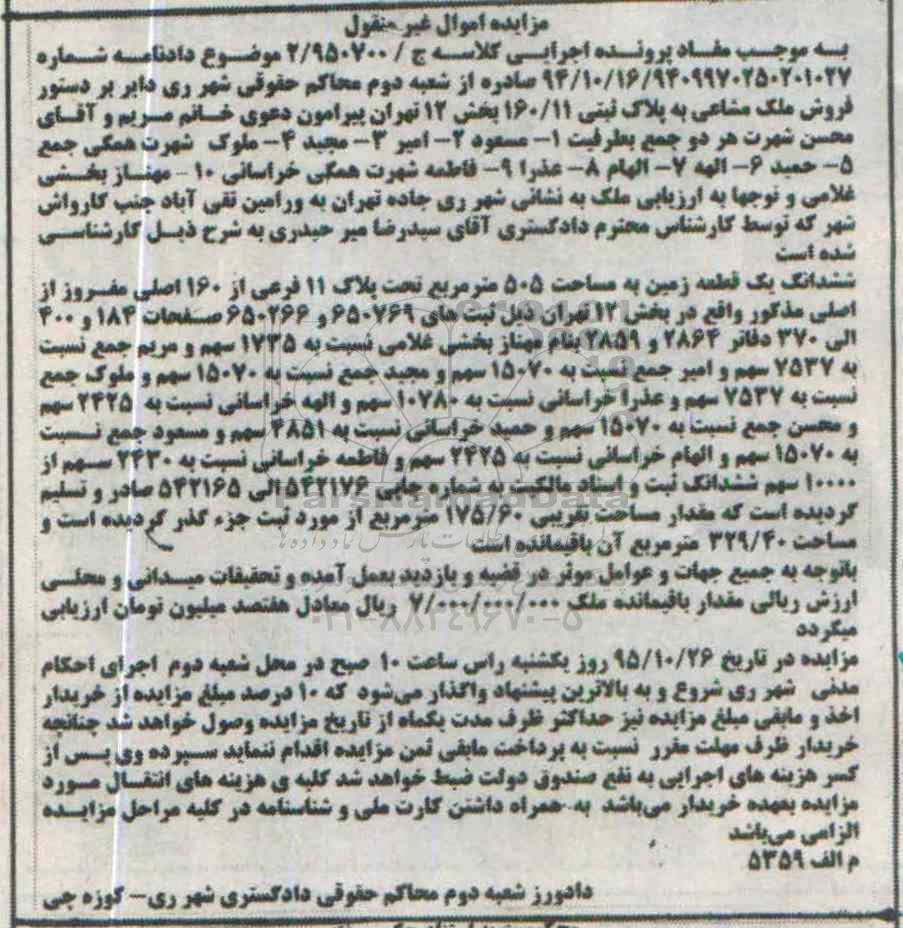 مزایده اموال غیر منقول
به موجب مفاد پرونده اجرایی کلاسه ج / ۲/۹۵۰۷۰۰ موضوع دادنامه شماره
۹۴/۱۰/۱۶/۹۴۰۹۹۷۰۲۵۰۲۰۱۰۲۷ صادره از شعبه دوم محاکم حقوقی شهر ری دایر بر دستور
فروش ملک مشاعی به پلاک ثبتی ۱۶۰/۱۱ بخش ۱۲ تهران پیرامون دعوی خانم مریم و آقای
محسن شهرت هر دو جمع بطرفیت ۱- مسعود ۲- امیر ۳- مجید ۴- ملوک شهرت همگی جمع
۵- حمید ۶- الهه ۷- الهام ۸- عذرا ۹- فاطمه شهرت همگی خراسانی ۱۰- مهناز بخشی
غلامی و توجها به ارزیابی ملک به نشانی شهر ری جاده تهران به ورامین تقی آباد جنب کارواش
شهر که توسط کارشناس محترم دادگستری آقای سیدرضا میر حیدری به شرح ذیل کارشناسی
شده است
ششدانگ یک قطعه زمین به مساحت ۵۰۵ مترمربع تحت پلاک ۱۱ فرعی از ۱۶۰ اصلی مفروز از
اصلی مذکور واقع در بخش ۱۲ تهران ذیل ثبت های ۶۵۰۷۶۹ و ۶۵۰۲۶۶ صفحات ۱۸۴ و ۴۰۰
الی ۳۷۰ دفاتر ۲۸۶۴ و ۲۸۵۹ بنام مهناز بخشی غلامی نسبت به ۱۷۳۵ سهم و مریم جمع نسبت
به ۷۵۳۷ سهم و امیر جمع نسبت به ۱۵۰۷۰ سهم و مجید جمع نسبت به ۱۵۰۷۰ سهم و ملوک جمع
نسبت به ۷۵۳۷ سهم و عذرا خراسانی نسبت به ۱۰۷۸۰ سهم و الهه خراسانی نسبت به ۲۴۲۵ سهم
و محسن جمع نسبت به ۱۵۰۷۰ سهم و حمید خراسانی نسبت به ۴۸۵۱ سهم و مسعود جمع نسبت
به ۱۵۰۷۰ سهم و الهام خراسانی نسبت به ۲۴۲۵ سهم و فاطمه خراسانی نسبت به ۲۴۳۰ سهم از
۱۰۰۰۰ سهم ششدانگ ثبت و اسناد مالکیت به شماره چاپی ۵۴۲۱۷۶ الی ۵۴۲۱۶۵ صادر و تسلیم
گردیده است که مقدار مساحت تقریبی ۱۷۵/۶۰ مترمربع از مورد ثبت جزء گذر گردیده است و
مساحت ۳۲۹/۴۰ مترمربع آن باقیمانده است
باتوجه به جمیع جهات و عوامل موثر در قضیه و بازدید بعمل آمده و تحقیقات میدانی و محلی
ارزش ریالی مقدار باقیمانده ملک ۷/۰۰۰/۰۰۰/۰۰۰ ریال معادل هفتصد میلیون تومان ارزیابی
میگردد
مزایده در تاریخ ۹۵/۱۰/۲۶ روز یکشنبه راس ساعت ۱۰ صبح در محل شعبه دوم اجرای احکام
مدنی شهر ری شروع و به بالاترین پیشنهاد واگذار می‌شود که ۱۰ درصد مبلغ مزایده از خریدار
اخذ و مابقی مبلغ مزایده نیز حداکثر ظرف مدت یکماه از تاریخ مزایده وصول خواهد شد چنانچه
خریدار ظرف مهلت مقرر نسبت به پرداخت مابقی ثمن مزایده اقدام ننماید سپرده وی پس از
کسر هزینه های اجرایی به نفع صندوق دولت ضبط خواهد شد کلیه ی هزینه های انتقال مورد
مزایده بعهده خریدار می‌باشد به همراه داشتن کارت ملی و شناسنامه در کلیه مراحل مزایده
الزامی می‌باشد
م الف ۵۳۵۹
دادورز شعبه دوم محاکم حقوقی دادگستری شهر ری- کوزه چی
ParsNamadData
۰۲۱-۸۸۳۴۹۶۷۰-۵